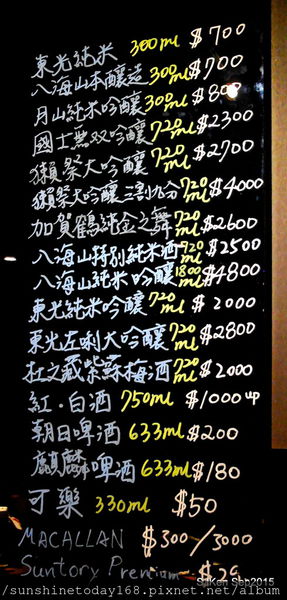 東光純米 300ml $700
八海山本釀造 300ml $700
月山純米吟釀 300ml $800
國士無双吟釀 720ml $2300
獺祭大吟釀 720ml $2700
獺祭大吟釀二割九分 720ml $4000
加賀鶴純金之舞 720ml $2600
八海山特別純米酒 720ml $2500
八海山純米吟釀 1800ml $4800
東光純米吟釀 720ml $2000
東光左利大吟釀 720ml $2800
杜之藏紫蘇梅酒 720ml $2000
紅·白酒 750ml $1000up
朝日啤酒 633ml $200
麒麟啤酒 633ml $180
可樂 330ml $50
MACALLAN $300/3000
Suntory Premium
Sep2015
/sunshinetoday168.pixnet.net/album